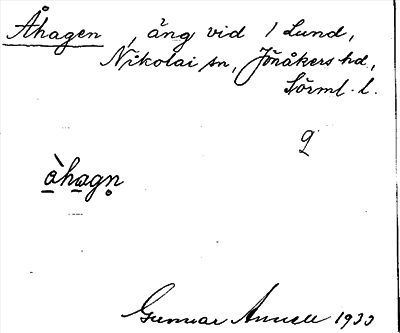 Åhagen, äng vid 1 Lund,
Nikolai sn, Jönåkers hd,
Sörml. l.
9
àhagn̥
Gunnar Annell 1933